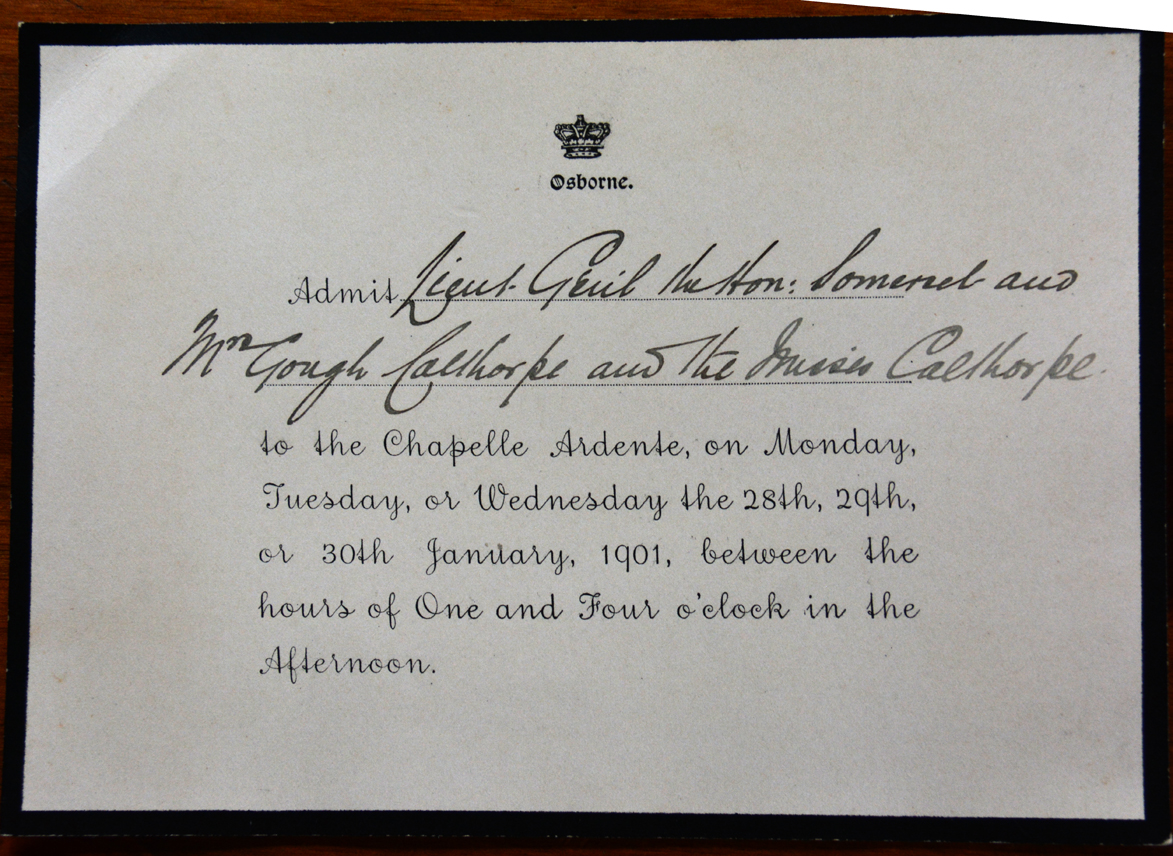 Osborne.
Admit Lieut. Genl the Hon: Somerset and
Mrs Gough Calthorpe and the Misses Calthorpe.
to the Chapelle Ardente, on Monday,
Tuesday, or Wednesday the 28th, 29th,
or 30th January, 1901, between the
hours of One and Four o'clock in the
Afternoon.